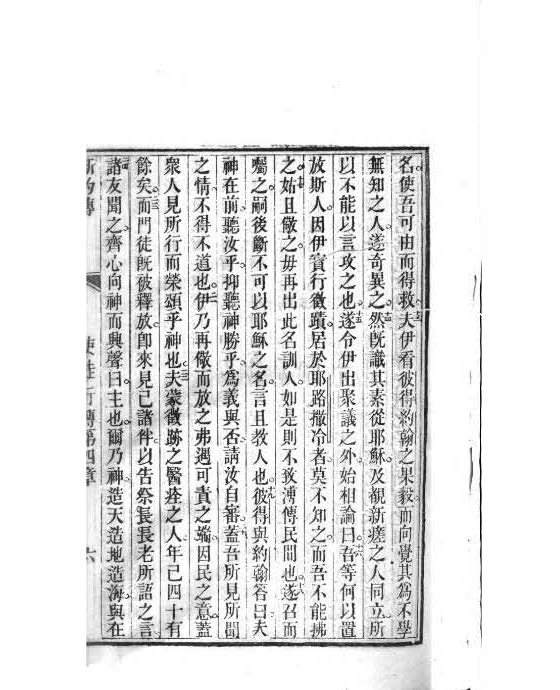 名使吾可由而得救。夫伊看彼得約翰之果毅而向覺其爲不學
無知之人遂奇異之然既識其素從耶穌及觀新瘥之人同立所
以不能以言攻之也遂令伊出聚議之外始相論曰吾等何以置
放斯人因伊實行徵蹟居於耶路撒冷者莫不知之而吾不能拂
之姑且儆之毋再出此名訓人如是則不致溥傳民間也遂召而
囑之嗣後斷不可以耶穌之名言且教人也彼得與約翰答曰夫
神在前聽汝乎抑聽神勝乎爲義與否請汝自審蓋吾所見所聞
之情不得不道也伊乃再儆而放之弗遇可責之端因民之意蓋
衆人見所行而榮頌乎神也夫蒙徵跡之醫痊之人年已四十有
餘矣而門徒既被釋放即來見己諸伴以告祭長長老所語之言
諸友聞之齊心向神而興聲曰主也爾乃神造天造地造海與在
使徒行傳第四章 六